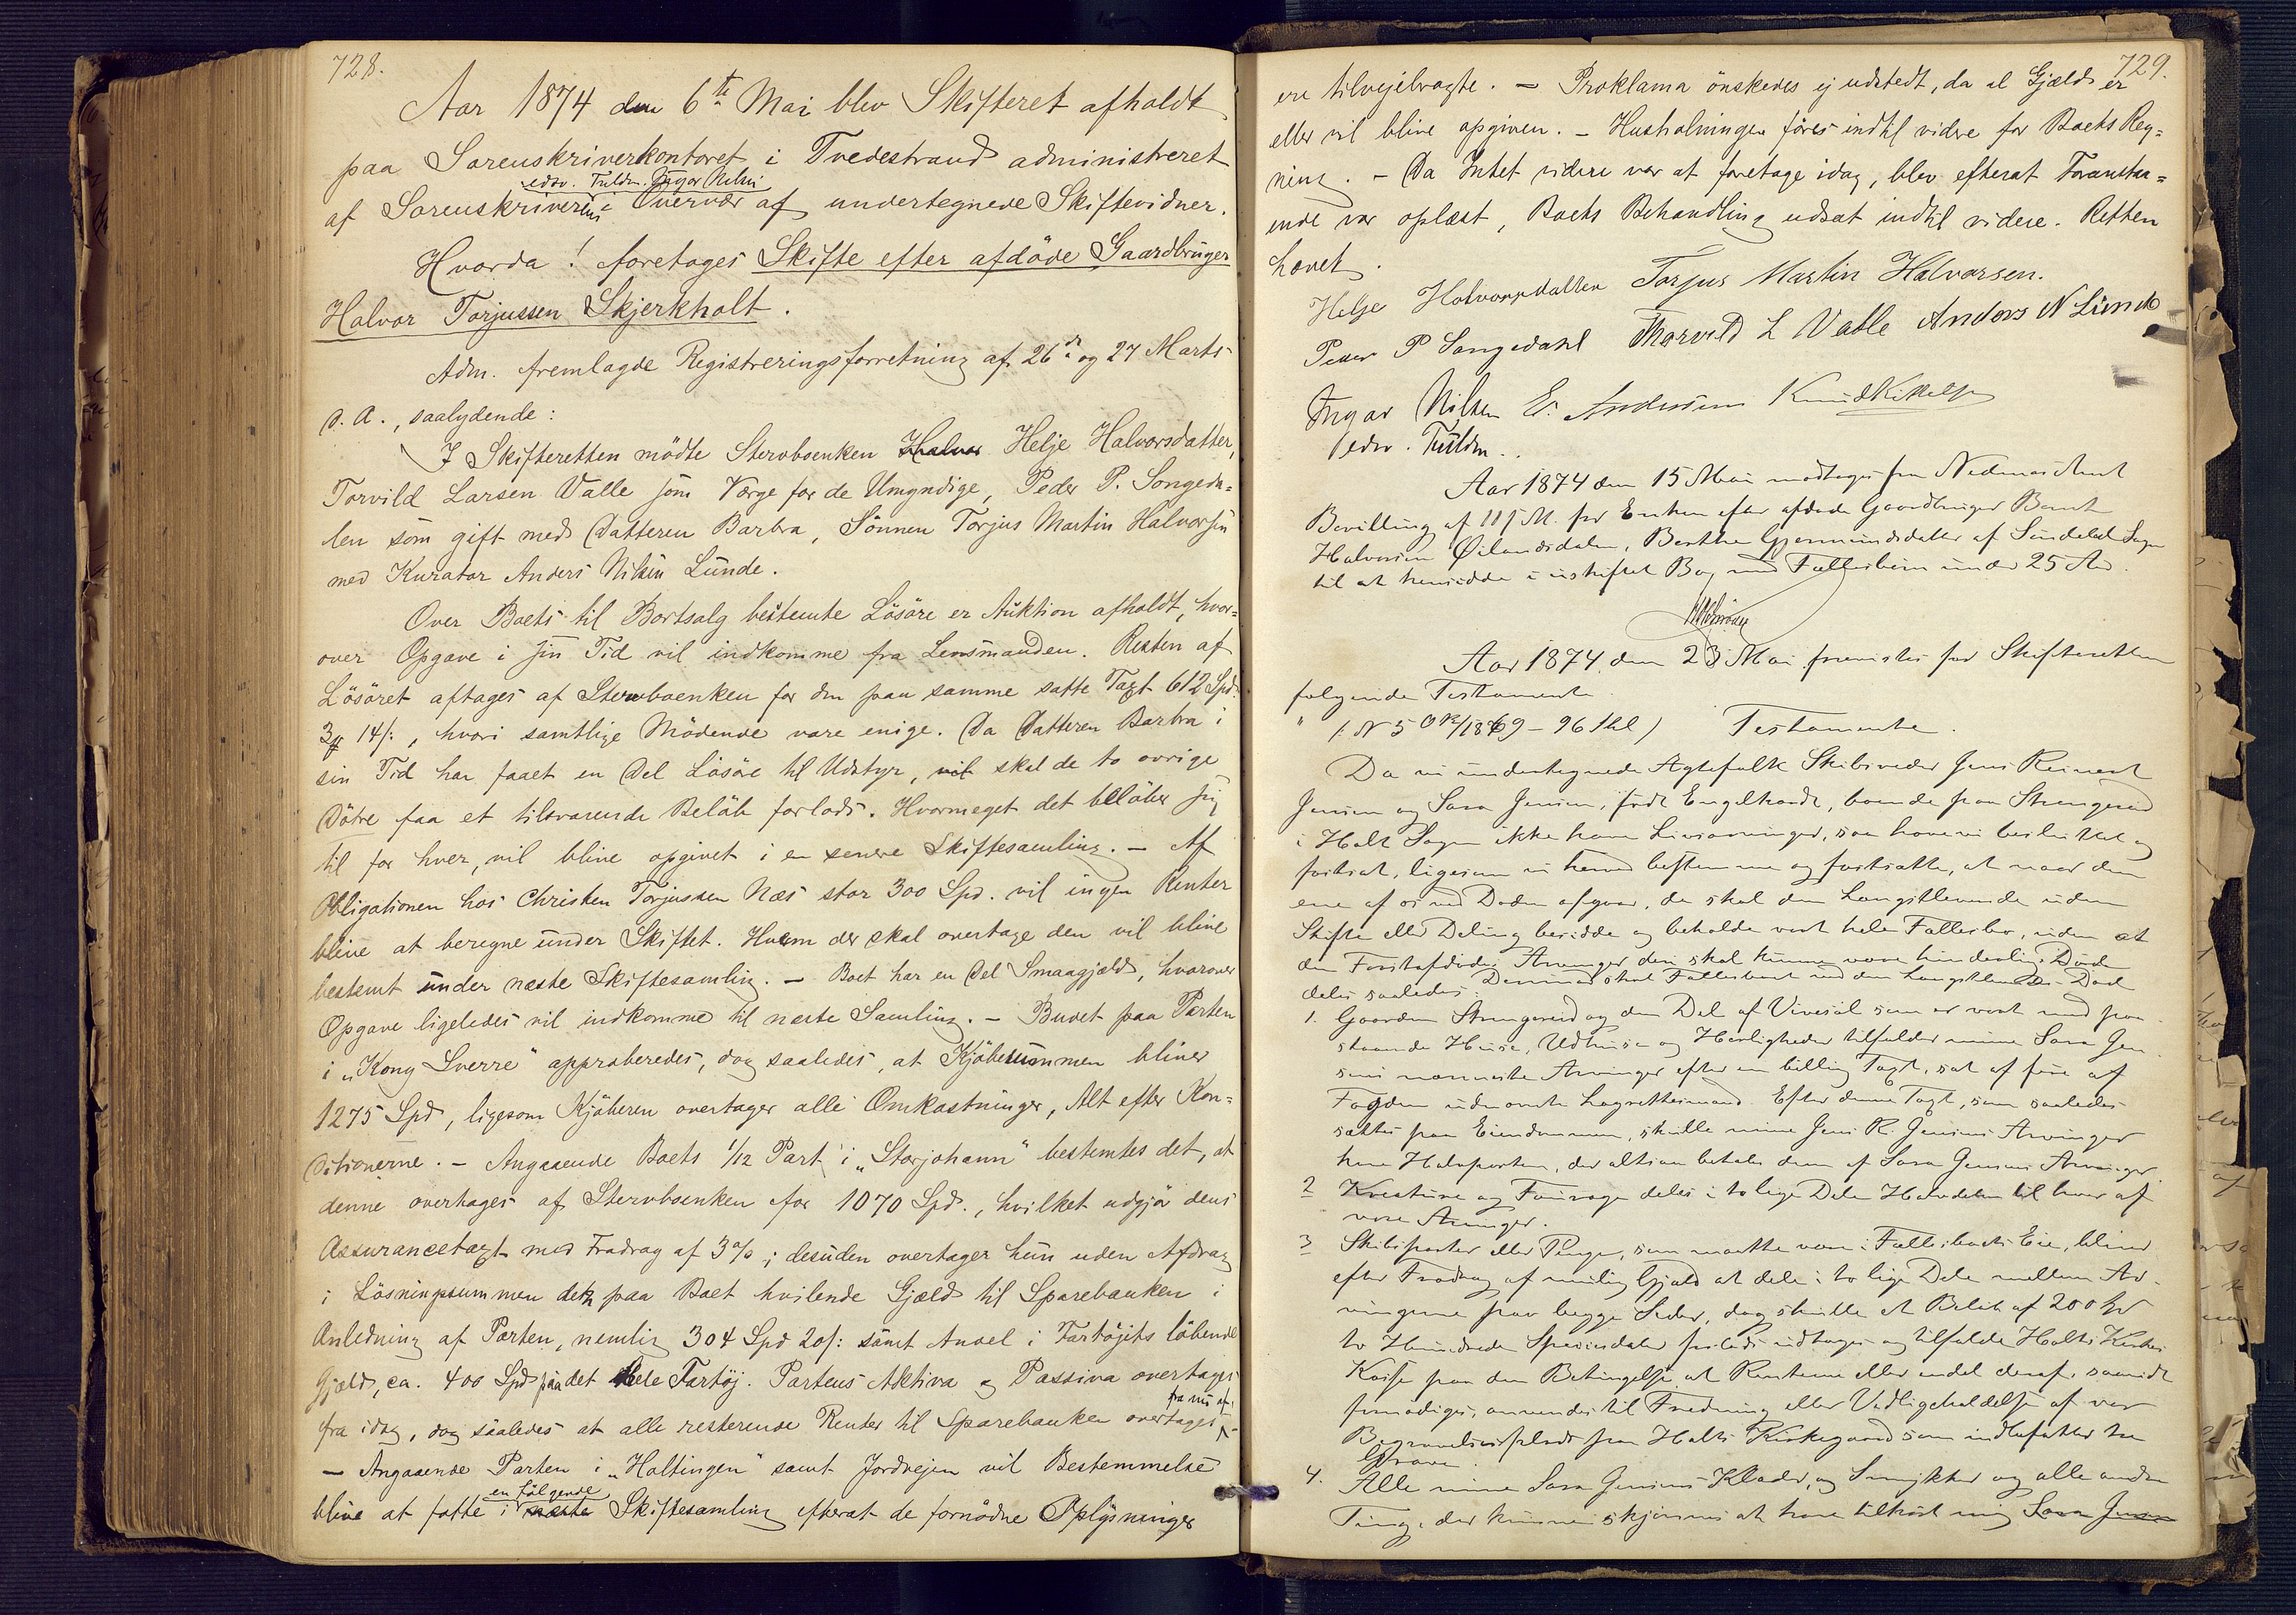 728.
Aar 1874 den 6te Mai blev Skifteret afholdt
paa Sorenskriverkontoret i Tvedestrand administreret
edsv. Fuldm. Ingvar Nilsen
af Sorenskriverens i Overvær af undertegnede Skiftevidner.
Hvorda! foretoges Skifte efter afdöde Gaardbruger
Halvor Torjussen Skjerkholt.
Adm. fremlagde Registreringsforretning af 26de og 27 Marts
d. A., saalydende:
I Skifteretten mödte Stervboenken Halvor Helje Halvorsdatter,
Torvild Larsen Valle som Værge for de Umyndige, Peder P. Songeda-
len som gift med Datteren Barbra, Sönnen Torjus Martin Halvorsen
med Kurator Anders Nilsen Lunde.
Over Boets til Bortsalg bestemte Lösöre er Auktion afholdt, hvor-
over Opgave i sin Tid vil indkomme fra Lensmanden. Resten af
Lösöret aftages af Stervboenken for den paa samme satte Taxt 612 Spd.
3 ℔ 14 s:, hvori samtlige Mödende vare enige. Da Datteren Barbra i
sin Tid har faaet en Del Lösöre til Udstyr, vil skal de to övrige
Dötre faa et tilsvarende Belöb forlods. Hvormeget det belöber sig
til for hver, vil blive opgivet i en senere Skiftesamling. — Af
Obligationen hos Christen Torjussen Næs stor 300 Spd. vil ingen Renter
blive at beregne under Skiftet. Hvem der skal overtage den vil blive
bestemt under næste Skiftesamling. — Boet har en Del Smaagjæld, hvorover
Opgave ligeledes vil indkomme til næste Samling. — Budet paa Parten
i „Kong Sverre“ approberedes, dog saaledes, at Kjöbesummen bliver
1275 Spd, ligesom Kjöberen overtager alle Omkostninger, Alt efter Kon-
ditionerne. — Angaaende Boets 1/12 Part i „Storjohann“ bestemtes det, at
denne overtages af Stervboenken for 1070 Spd., hvilket udgjör dens
Assurancetaxt med Fradrag af 3 %; desuden overtager hun uden Afdrag
i Lösningssummen den paa Boet hvilende Gjæld til Sparebanken i
Anledning af Parten, nemlig 304 Spd 20 s: samt Andel i Fartöjets löbende
Gjæld, ca. 400 Spd paa det hele Fartöj. Partens Aktiva og Passiva overtages
fra nu af.
fra idag, dog saaledes at alle resterende Renter til Sparebanken overtages
— Angaaende Parten i „Holtingen“ samt Jordvejen vil Bestemmelse
en fölgende
blive at fatte i næste Skiftesamling efterat de fornödne Oplysninger
729.
ere tilvejebragte. — Proklama önskedes ej udstedt, da al Gjæld er
eller vil blive opgiven. — Husholdningen föres indtil videre for Boets Reg-
ning. — Da Intet videre var at foretage idag, blev efterat Foranstaa-
ende var oplæst, Boets Behandling udsat indtil videre. Retten
hævet.
Helje Halvorsdatter Torjus Martin Halvorsen.
Peder P Songedahl Thorvild L Valle Anders N Lunde
Ingvar Nilsen E. Andersen Knud Kittelsen
edsv. Fuldm.
Aar 1874 den 15 Mai modtoges fra Nedenæs Amt
Bevilling af 11 s. M. for Enken efter afdöde Gaardbruger Bernt
Halvorsen Øilandsdalen, Berthe Gjermundsdatter af Söndeled Sogn
til at hensidde i uskiftet Bo med Fællesbörn under 25 Aar.
Aar 1874 den 23 Mai fremviste for Skifteretten
fölgende Testamente
" (: N 5 1869 – 96 Skl) Testamente.
Da vi undertegnede Agtefolk Skibsreder Jens Reinert
Jensen og Sara Jensen, född Engelhardt, boende paa Strengereid
i Holt Sogn ikke have Livsarvinger, saa have vi besluttet og
fastsat, ligesom vi herved bestemme og fastsætte, at naar den
ene af os ved Döden afgaar, da skal den Længstlevende uden
Skifte eller Deling besidde og beholde vort hele Fællesbo, uden at
den Förstafdödes Arvinger deri skal kunne være hinderlig.
Derimod skal Fællesboet ved den Længstlevendes Död
deles saaledes:
1. Gaarden Strengereid og den Del af Vivesöl som er vort med paa-
staaende Huse, Udhuse og Herligheder tilfalder mine Sara Jen-
sens nærmeste Arvinger efter en billig Taxt, sat af fire af
Fogden udnævnte Lagrettesmænd. Efter denne Taxt, som saaledes
sættes paa Eiendommen, skulle mine Jens R. Jensens Arvinger
have Halvparten, der altsaa betales dem af Sara Jensens Arvinger.
2 Kreature og Fourage deles i to lige Dele Halvdelen til hver af
vore Arvinger.
3 Skibsparter eller Penge, som maatte være i Fællesboets Eie, bliver
efter Fradrag af mulig Gjæld at dele i to lige Dele mellem Ar-
vingerne paa begge Sider, dog skulle et Belöb af 200 Spd
to Hundrede Speciedaler forlods udtages og tilfalde Holts Kirkes
Kasse paa den Betingelse at Renterne eller endel deraf, saavidt
fornödiges, anvendes til Fredning eller Vedligeholdelse af vor
Begravelsesplads paa Holts Kirkegaard som indbefatter tre
Grave.
4. Alle mine Sara Jensens Klæder, og Smykker og alle andre
Ting, der kunne skjönnes at have tilhört mig Sara Jensen